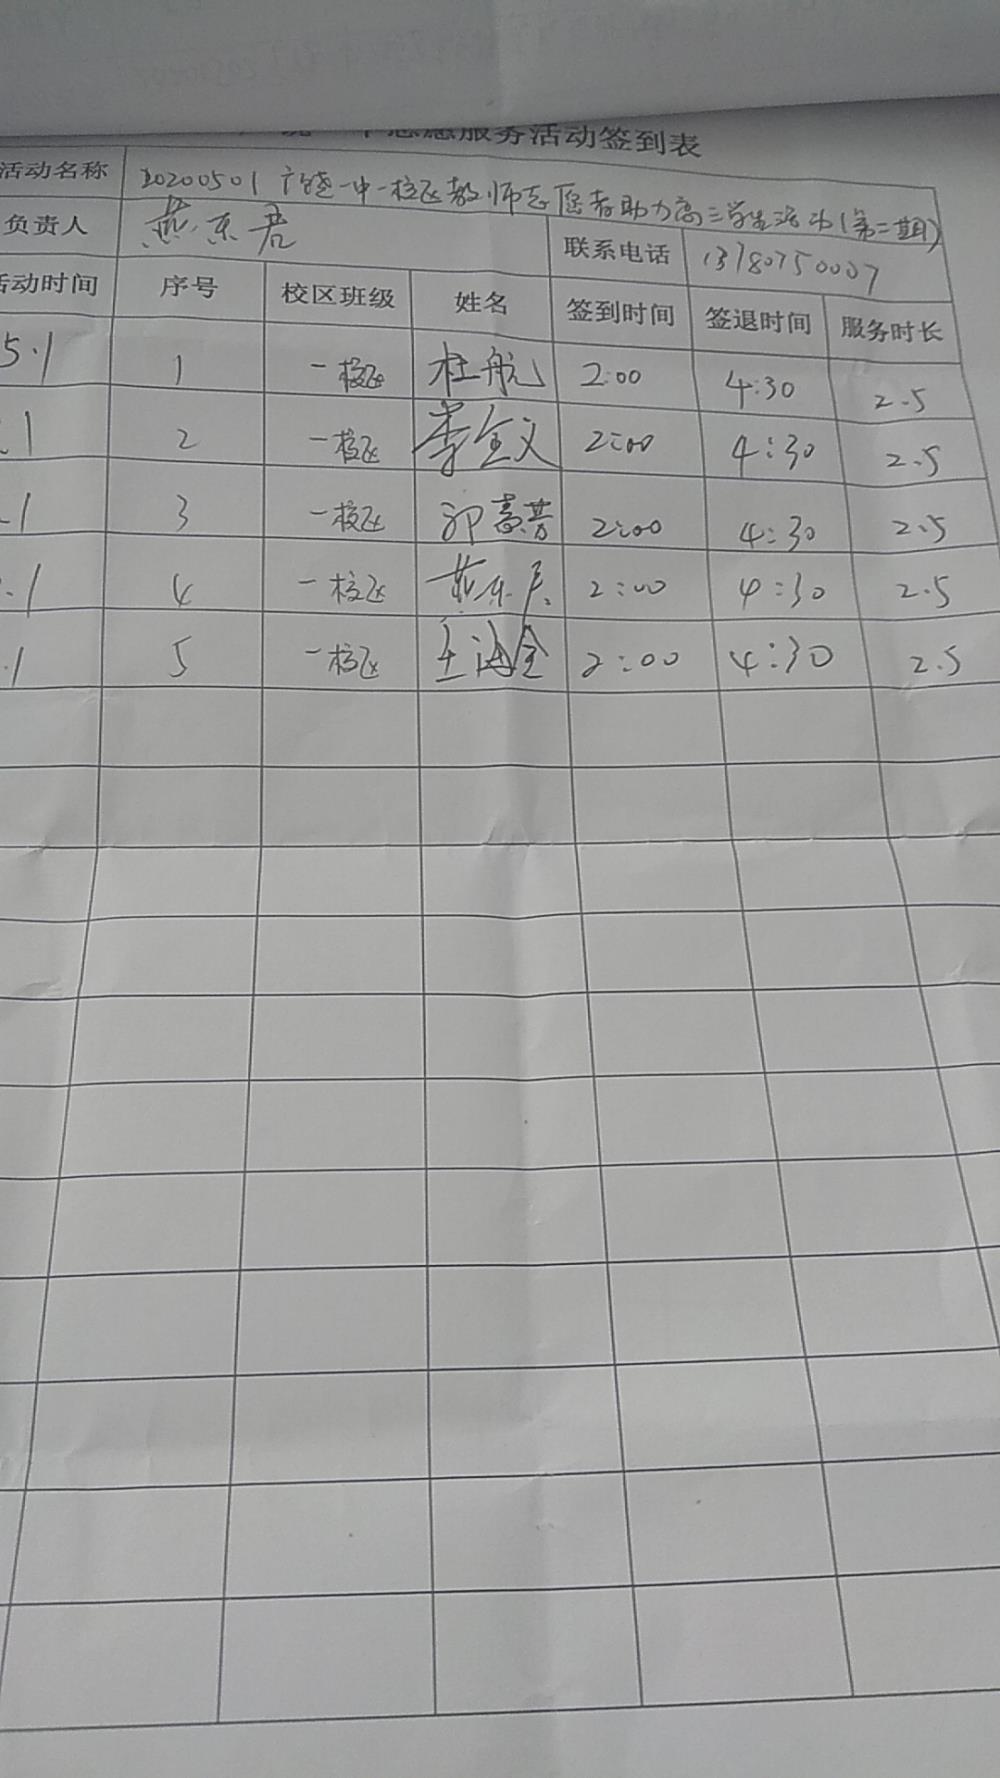 志愿服务活动签到表
活动名称 20200501 广饶一中一校区教师志愿者助力高三学生活动(第二期)
负责人 燕乐君 联系电话 13780750007
活动时间 序号 校区班级 姓名 签到时间 签退时间 服务时长
5.1 1 一校区 杜航 2:00 4:30 2.5
.1 2 一校区 李全文 2:00 4:30 2.5
.1 3 一校区 2:00 4:30 2.5
.1 4 一校区 2:00 4:30 2.5
.1 5 一校区 王海全 2:00 4:30 2.5